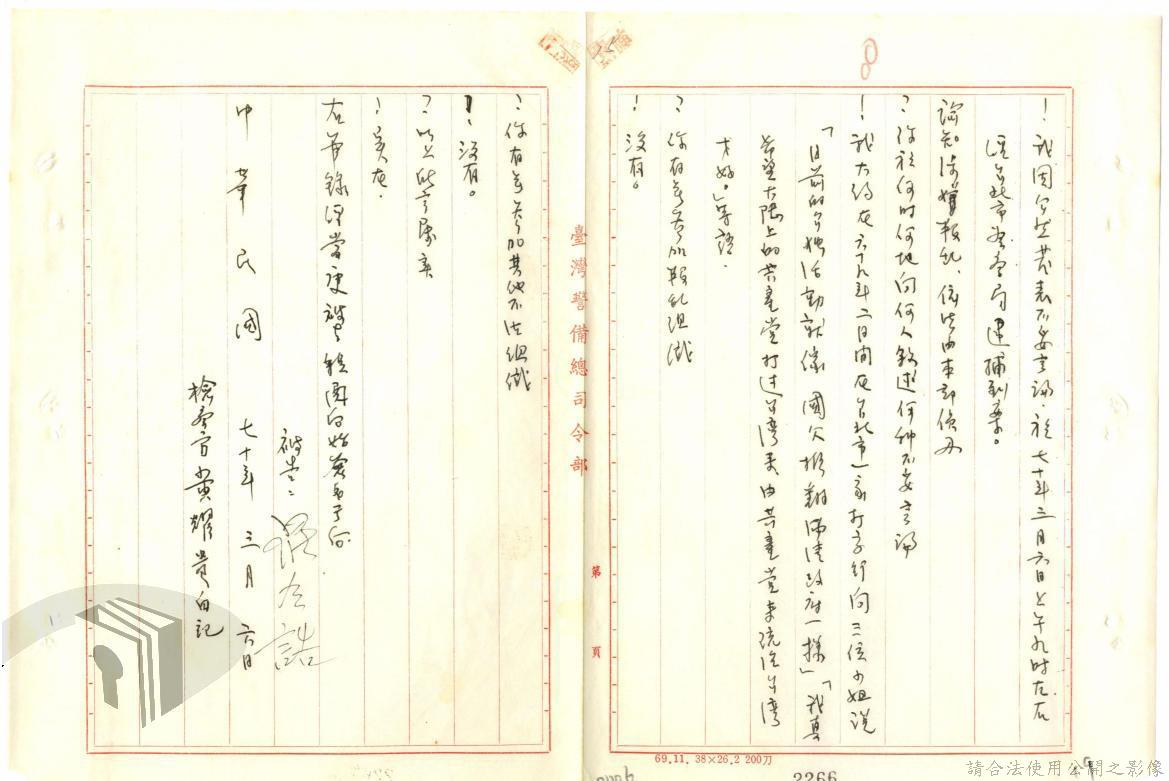 8
！我因公然發表不妥言論，於七十年三月六日上午九時左右
經台北市警察局逮捕到案。
諭知涉嫌叛亂，依法由本部偵辦
？你於何時何地向何人敘述何種不妥言論
！我大約在六十九年二月間在台北市一家打字行向三位小姐說
「目前的台獨活動就像國父推翻滿清政府一樣」「我真
希望大陸上的共產黨打過台灣來，由共產黨來統治台灣
才好。」等語。
？你有無參加叛亂組織
！沒有。
臺灣警備總司令部
第 頁
？你有無參加其他不法組織
！沒有。
？以上所言屬實
！實在。
右筆錄經當庭
被告
中華民國七十年三月六日
檢察官 黃耀
69.11. 38×26.2 200刀
2266
請合法使用公開之影像